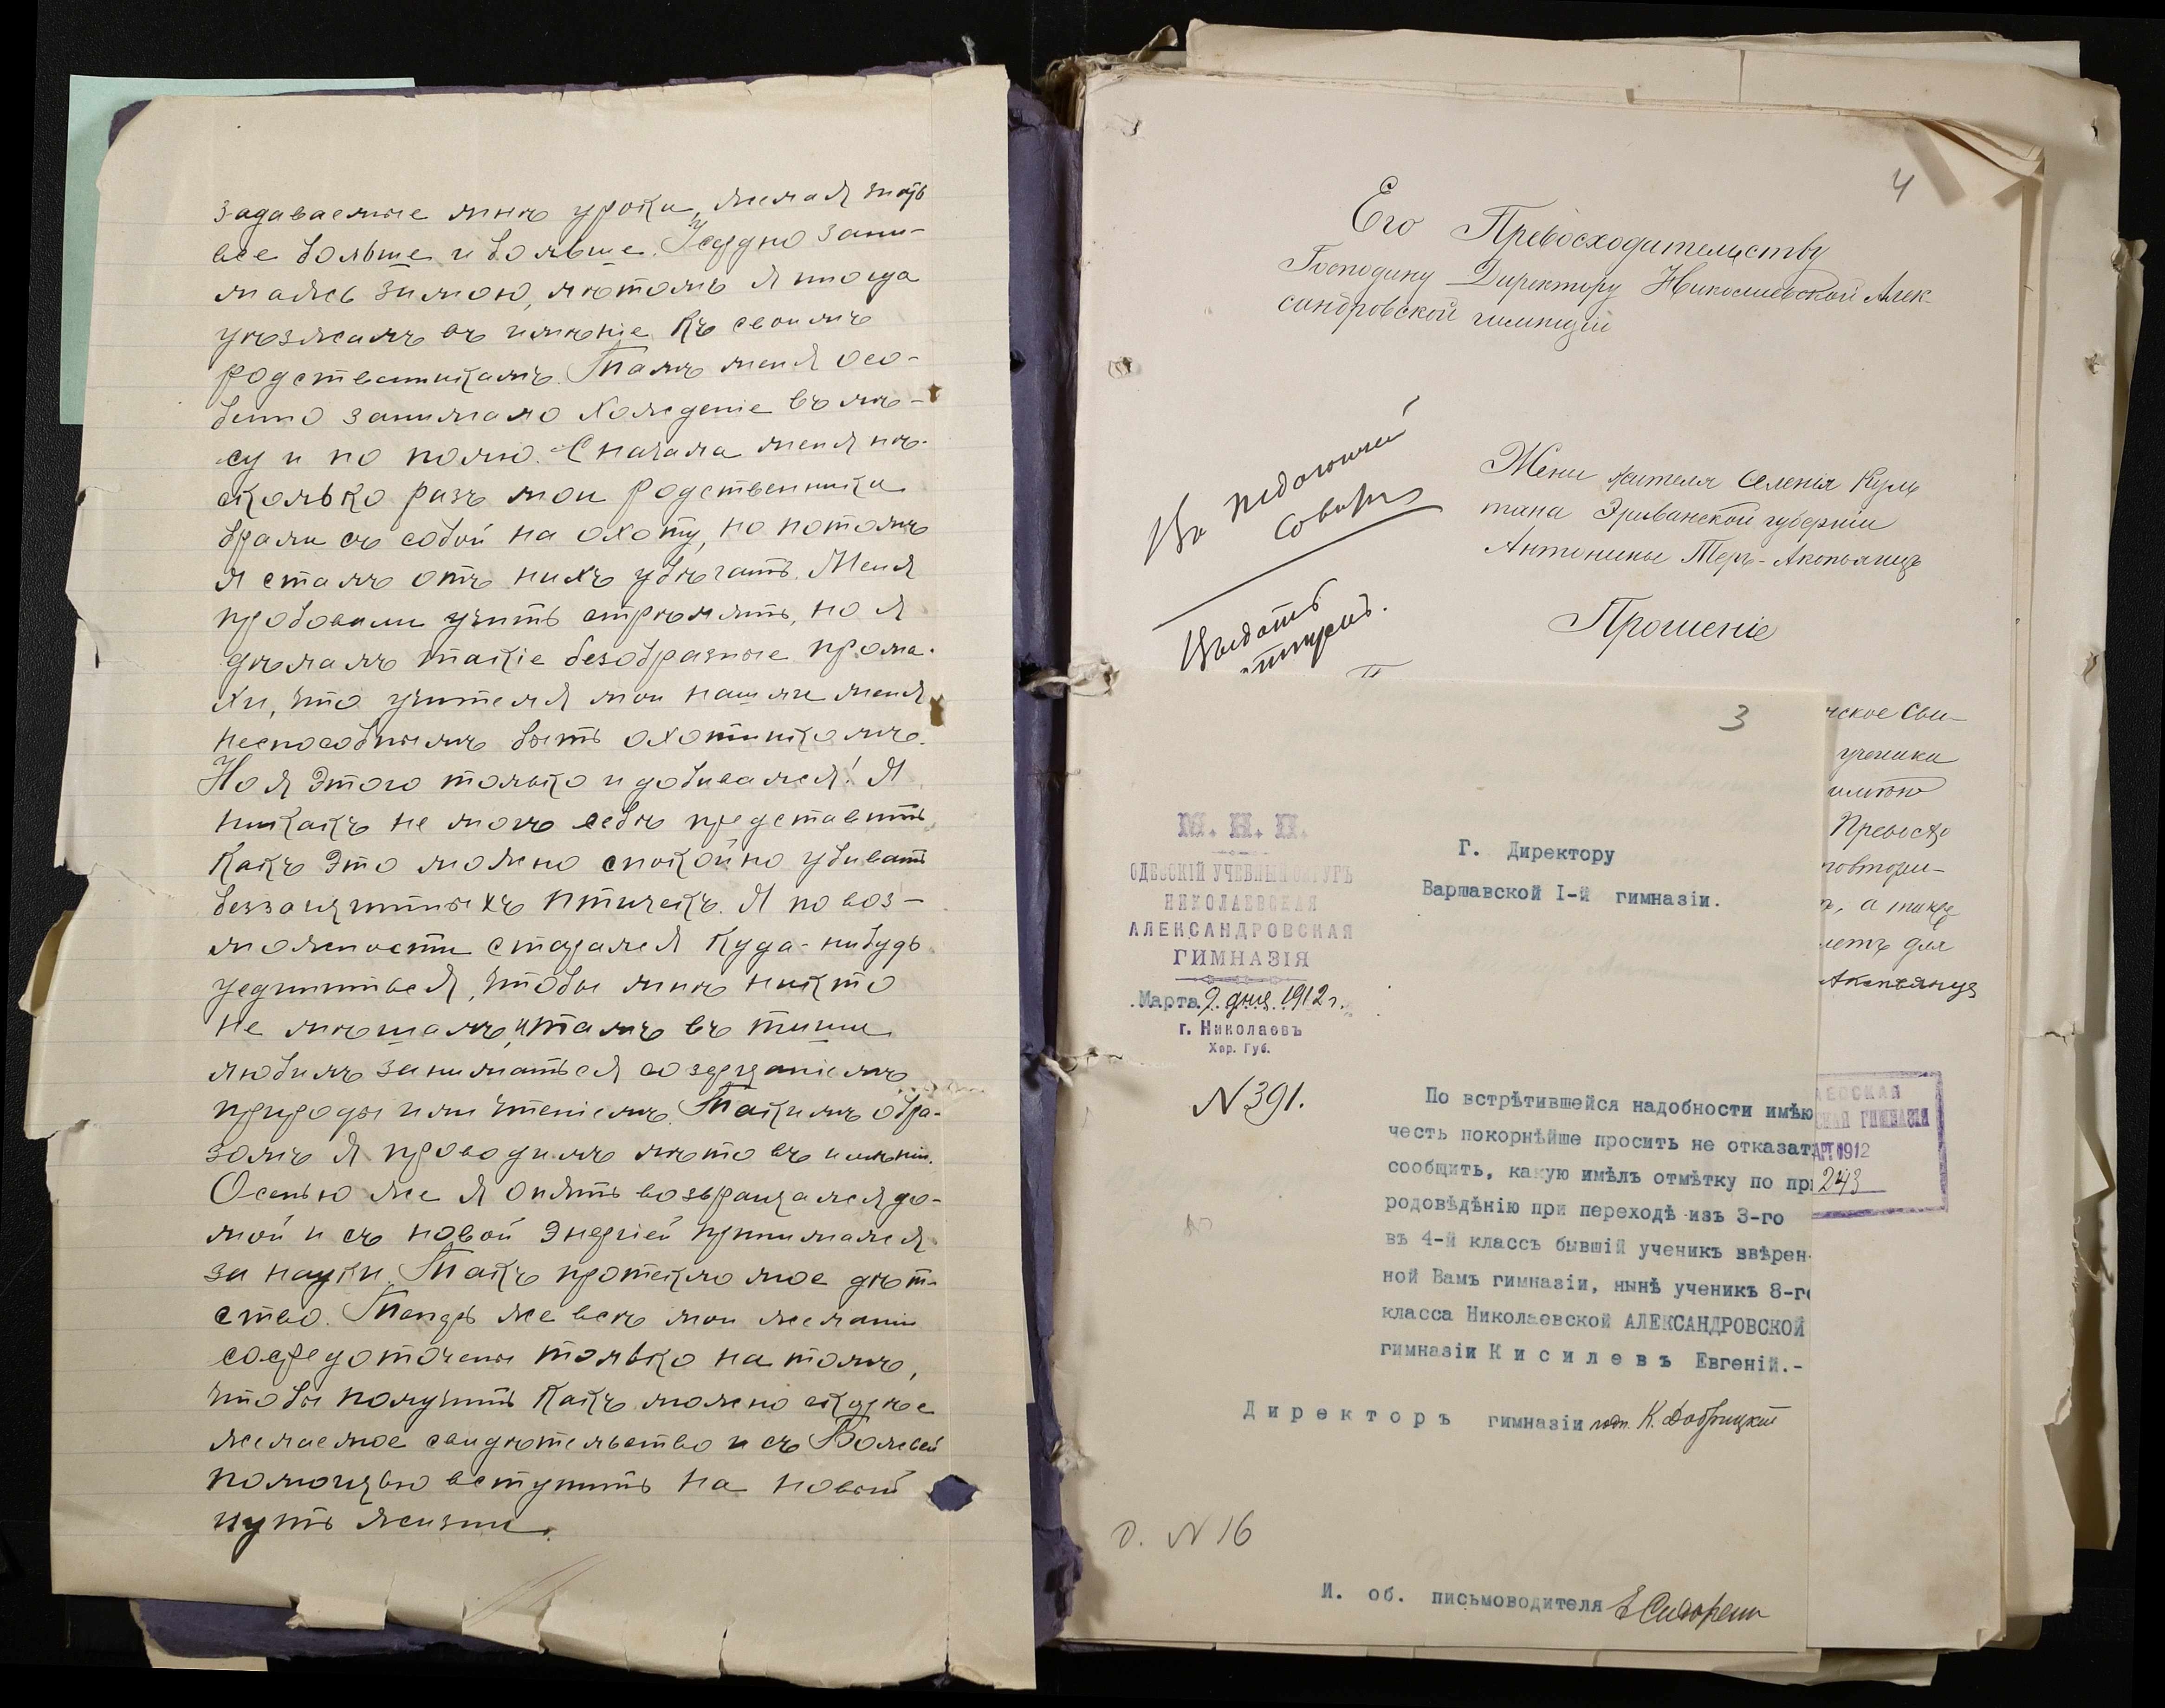 задаваемые мнѣ уроки, желая знать
все больше и больше. Усердно зани-
маясь зимою, лѣтомъ я иногда
уѣзжалъ въ имѣніе къ своимъ
родственникамъ. Тамъ меня осо-
бенно занимало хожденіе въ лѣ-
су и по полю. Сначала меня нѣ-
сколько разъ мои родственники
брали съ собой на охоту, но потомъ
я сталъ отъ нихъ убѣгать. Меня
пробовали учить стрѣлять, но я
дѣлалъ такіе безобразные прома-
хи, что учителя мои нашли меня
неспособнымъ быть охотникомъ.
Но я этого только и добивался! Я
никакъ не могъ себѣ представить,
какъ это можно спокойно убивать
беззащитныхъ птичекъ. Я по воз-
можности старался куда-нибудь
уединиться, чтобы мнѣ никто
не мѣшалъ, и тамъ въ тиши
любилъ заниматься созерцаніемъ
природы или чтеніемъ. Такимъ обра-
зомъ я проводилъ лѣто въ имѣніи.
Осенью же я опять возвращался до-
мой и съ новой энергіей принимался
за науки. Такъ протекло мое дѣт-
ство. Теперь же всѣ мои желанія
сосредоточены только на томъ,
чтобы получить какъ можно скорѣе
желаемое свидѣтельство и съ Божьей
помощью вступить на новый
путь жизни.
4
Его Превосходительству
Господину Директору Николаевской Алек-
сандровской гимназіи
Въ педагогичей
Совѣтъ
Жены жителя селенія Куль
тапа Эриванской губерніи
Антонины Теръ-Акопьянцъ
Прошеніе
Выдать
ческое Сви-
ученика
имѣю
Превосхо
повтори-
а также
лѣтъ для
Акопьянцъ
3
М. Н. П.
ОДЕССКІЙ УЧЕБНЫЙ ОКРУГЪ
НИКОЛАЕВСКАЯ
АЛЕКСАНДРОВСКАЯ
ГИМНАЗІЯ
Марта 9 дня 1912 г.
г. Николаевъ
Хер. Губ.
N 391.
Г. Директору
Варшавской I-й гимназіи.
По встрѣтившейся надобности имѣю
честь покорнѣйше просить не отказат
сообщить, какую имѣлъ отмѣтку по при
родовѣдѣнію при переходѣ изъ 3-го
въ 4-й классъ бывшій ученикъ ввѣрен-
ной Вамъ гимназіи, нынѣ ученикъ 8-го
класса Николаевской АЛЕКСАНДРОВСКОЙ
гимназіи Кисилевъ Евгеній.-
Директоръ гимназіи подп. К. Добрицкій
О. N 16
И. об. письмоводителя
ЕССКАЯ
СКАЯ ГИМНАЗІЯ
АРТ 1912
243